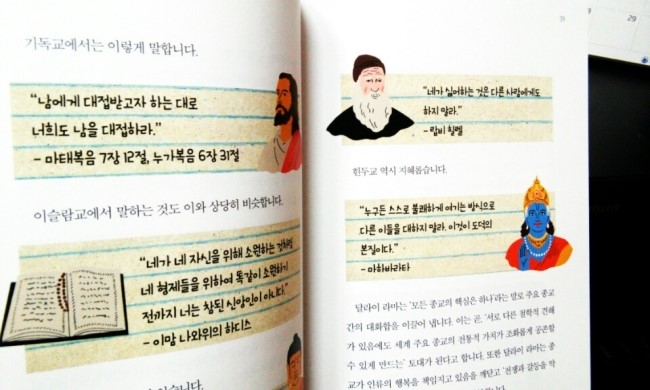 기독교에서는 이렇게 말합니다.
“남에게 대접받고자 하는 대로
너희도 남을 대접하라.”
- 마태복음 7장 12절, 누가복음 6장 31절
이슬람교에서 말하는 것도 이와 상당히 비슷합니다.
“네가 네 자신을 위해 소원하는 것처럼
네 형제들을 위하여 똑같이 소원하기
전까지 너는 참된 신앙인이 아니다.”
- 이맘 나와위의 하디스
“네가 싫어하는 것은 다른 사람에게도
하지 말라.”
- 랍비 힐렐
힌두교 역시 지혜롭습니다.
“누구든 스스로 불쾌하게 여기는 방식으로
다른 이들을 대하지 말라. 이것이 도덕의
본질이다.”
- 마하바라타
달라이 라마는 '모든 종교의 핵심은 하나'라는 말로 주요 종교
간의 대화합을 이끌어 냅니다. 이는 곧, '서로 다른 철학적 견해
가 있음에도 세계 주요 종교의 전통적 가치가 조화롭게 공존할
수 있게 만드는' 토대가 된다고 합니다. 또한 달라이 라마는 종
교가 인류의 행복을 책임지고 있음을 깨닫고 '전쟁과 갈등을 막
29